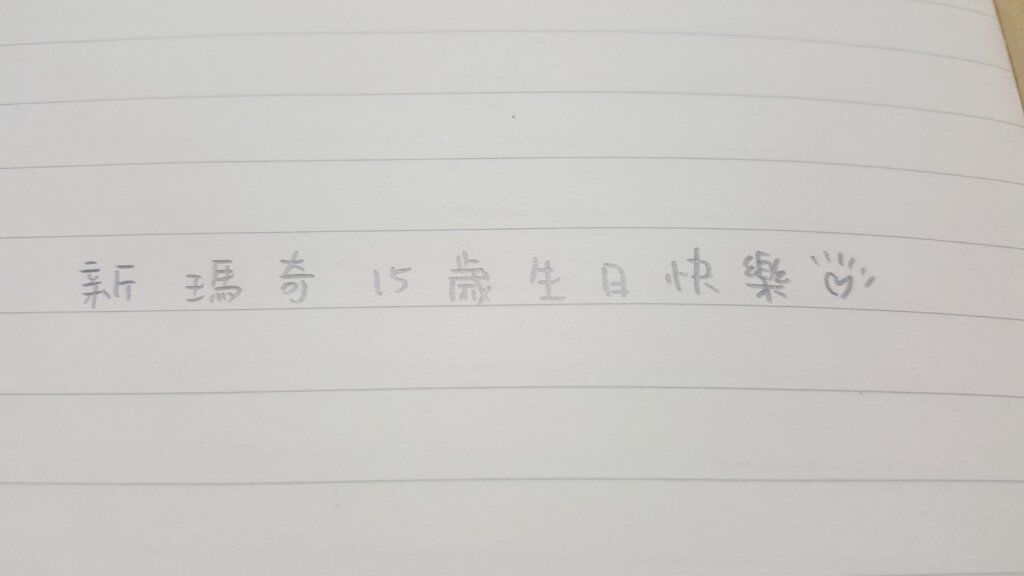 新瑪奇15歲生日快樂♡